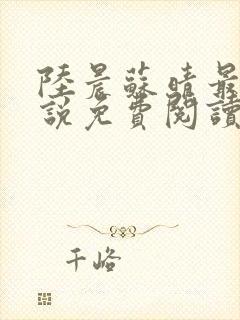 陸晨蘇晴最
說免費閱讀
千峪